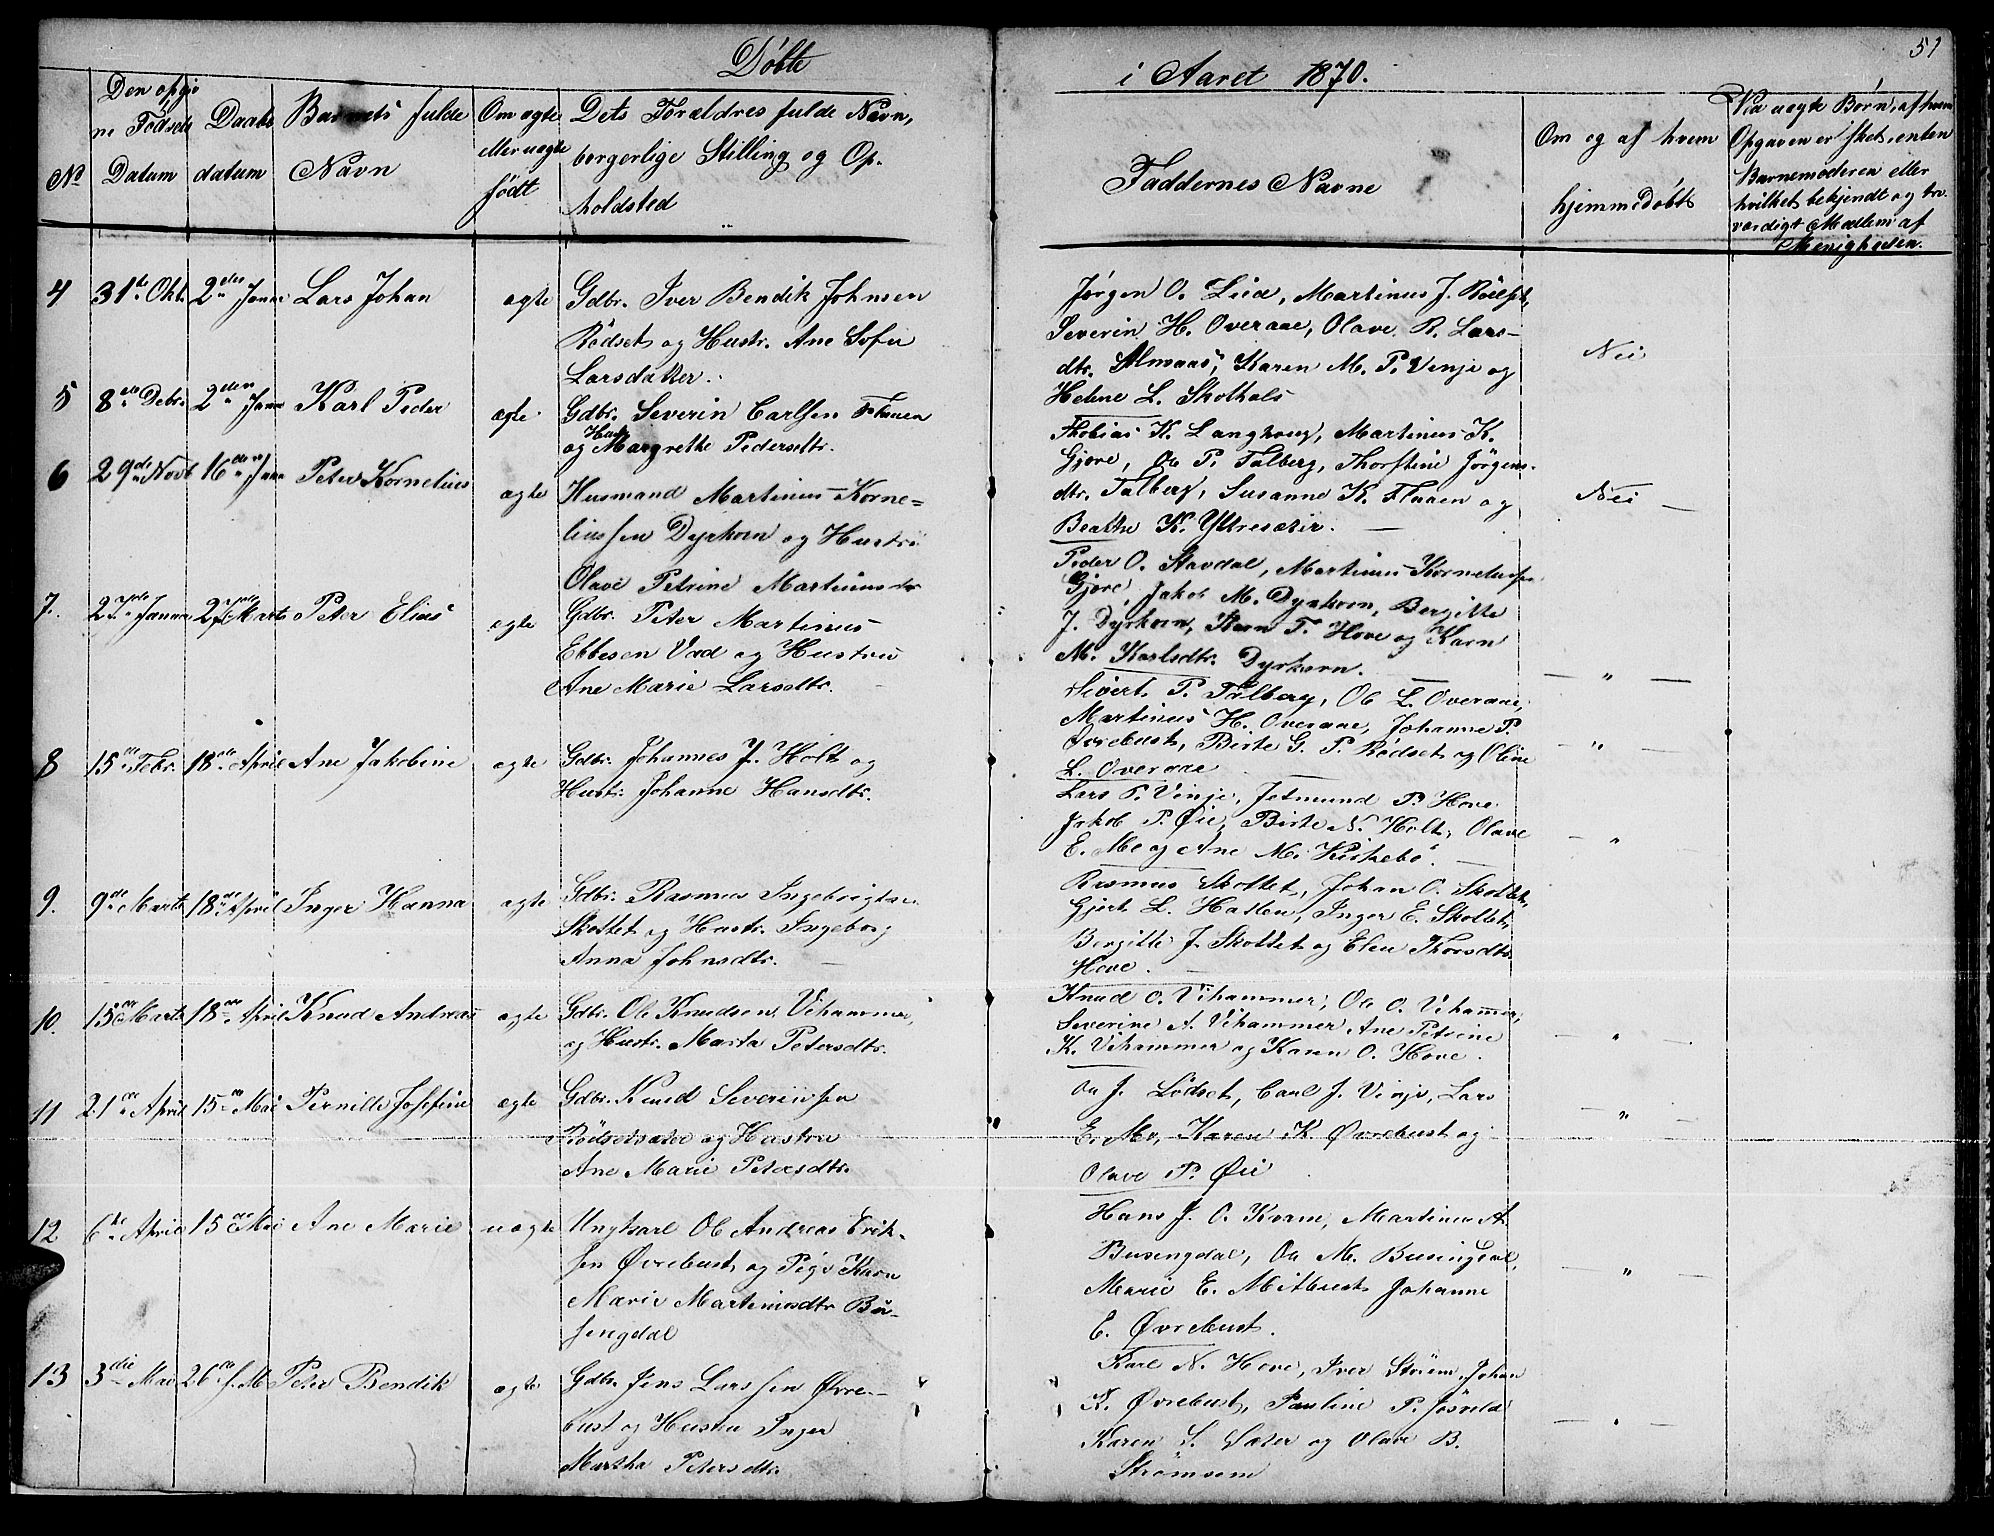 Døbte
i Aaret 1870.
51
No
Den opgivne Fødsels Datum
Daabs datum
Barnets fulde Navn
Om ægte eller uægte født
Dets Forældres fulde Navn,
borgerlige Stilling og Op-
holdsted
Faddernes Navne
Om og af hvem
hjemmedøbt
Ved uægte Børn, af hvem
Opgaven er sket, enten
Barnemoderen eller
hvilket bekjendt og tro-
værdigt Medlem af
Menigheden.
4 31te Okt. 2den Janr Lars Johan ægte Gdbr. Iver Bendik Johnsen
Rødset og Hustr. Ane Sofie
Larsdatter.
Jørgen O. Lied, Martinus J. Rødset,
Severin H. Overaae, Olave R. Lars-
dtr. Almaas, Karen M. P. Venje og
Helene L. Skothols
Nei
5 8de Debr. 2den Janr Karl Peder ægte Gdbr. Severin Carlsen Fluuen
og Hustr. Margrethe Pedersdtr.
Thobias K. Langhoug, Martinus K.
Gjøre, Ole P. Talberg, Thorstine Jørgens-
dtr. Talberg, Susanne K. Fluuen og
Beathe K. Yttresæter.
Nei
6 29de Novbr 16den Janr Peter Kornelius ægte Husmand Martinus Korne-
liussen Dyrkorn og Hustru
Olave Petrine Martinusdtr
Peder O. Stavdal, Martinus Korneliussen
Gjøre, Jakob M. Dyrkorn, Bergitte
J. Dyrkorn, Karn T. Hove og Karn
M. Karlsdtr. Dyrkorn.
"
7. 27de Januar 27de Marts Peter Elias ægte Gdbr. Peter Martinus
Ebbesen Vad og Hustru
Ane Marie Larsdtr.
Sivert P. Talberg, Ole L. Overaae,
Martinus H. Overaae, Johanne P.
Øvrebust, Birte G. P. Rødset og Oline
L. Overaae
"
8 15de Febr. 18de April Ane Jakobine ægte Gdbr. Johannes J. Holt og
Hustr. Johanne Hansdtr.
Lars P. Vinje, Jetmund P. Hove
Jakob P. Øie, Birte N. Holt, Olave
E. Mo og Ane M. Kirkebø.
"
9. 9de Marts 18de April Inger Hanna ægte Gdbr. Rasmus Ingebrigtsen
Skottet og Hustr. Ingeborg
Anna Johnsdtr.
Rasmus Skottet, Johan O. Skottet,
Gjert L. Hatlen, Inger E. Skottet,
Bergitte J. Skottet og Elen Thorsdtr.
Hove.
10. 15de Marts 18de April Knud Andreas ægte Gdbr. Ole Knudsen Vihammer,
og Hustr. Marta Petersdtr.
Knud O. Vihammer, Ole O. Vihammer,
Severine A. Vihammer Ane Petrine
K. Vihammer og Karen O. Hove.
"
11 21de April 15de Mai Pernille Josefine ægte Gdbr. Knud Severinsen
Rødsetsæter og Hustru
Ane Marie Petersdtr.
Ole J. Lødset, Carl J. Vinje, Lars
E. Mo, Karen K. Øvrebust og
Olave P. Øie
"
12. 6te April 15de Mai Ane Marie uægte Ungkarl Ole Andreas Erik-
sen Øvrebust og Pige Karn
Marie Martinusdtr. Bu-
sengdal
Hans J. O. Kvam, Martinus A.
Busengdal, Ole M. Busengdal,
Marie E. Mitbust Johanne
E. Øvrebust.
"
13 3die Mai 26de s. M. Peter Bendik ægte Gdbr. Jens Larssen Øvre-
bust og Hustru Inger
Martha Petersdtr.
Karl N. Hove, Iver Strøm, Johan
K. Øvrebust, Pauline P. Jøsvold
Karen S. Sæter og Olave B.
Strømsem
"